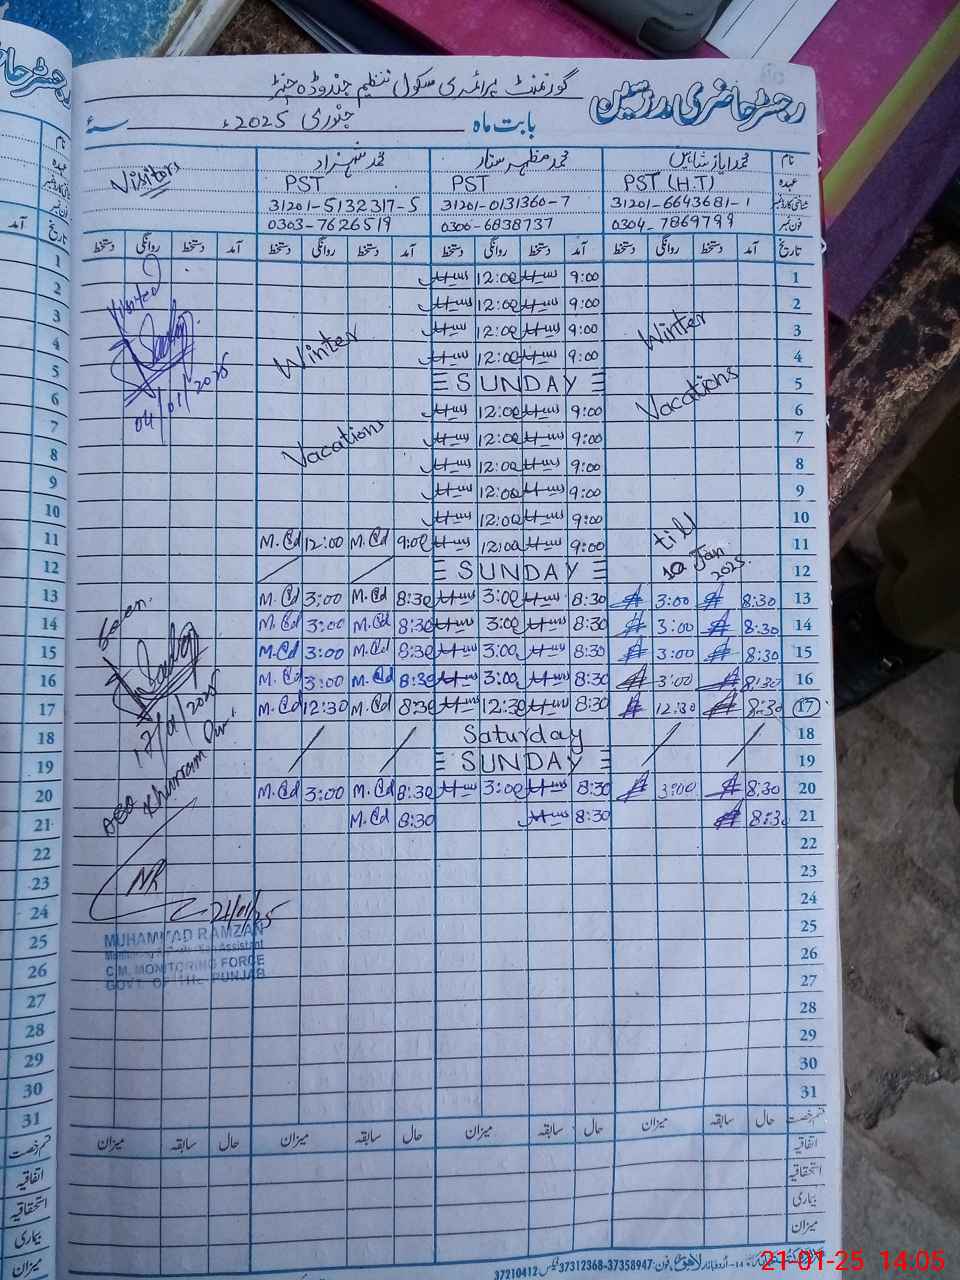 رجسٹر حاضری مدرسین
گورنمنٹ پرائمری سکول تنظیم چندوڈہ چنڑ
بابت ماہ جنوری 2025ء سنۂ
نام محمد ایاز شاہین محمد مظہر ستار محمد شہزاد Visitors
عہدہ PST (H.T) PST PST
شناختی کارڈ نمبر 31201-6643681-1 31201-0131360-7 31201-5132317-5
فون نمبر 0304-7869799 0306-6838737 0303-7626519
تاریخ آمد دستخط روانگی دستخط آمد دستخط روانگی دستخط آمد دستخط روانگی دستخط آمد دستخط روانگی دستخط
1 9:00 12:00
2 9:00 12:00 Visited
3 Winter 9:00 12:00 Winter
4 9:00 12:00
5 SUNDAY 04/01/2025
6 Vacations 9:00 12:00
7 9:00 12:00 Vacations
8 9:00 12:00
9 9:00 12:00
10 9:00 12:00
11 till 9:00 12:00 9:00 M.Cd 12:00 M.Cd
12 Jan 2025. SUNDAY
13 8:30 3:00 8:30 3:00 8:30 M.Cd 3:00 M.Cd Seen.
14 8:30 3:00 8:30 3:00 8:30 M.Cd 3:00 M.Cd
15 8:30 3:00 8:30 3:00 8:30 M.Cd 3:00 M.Cd
16 8:30 3:00 8:30 3:00 8:30 M.Cd 3:00 M.Cd
17 8:30 12:30 8:30 12:30 8:30 M.Cd 12:30 M.Cd 17/01/2025
18 Saturday
19 SUNDAY
20 8:30 3:00 8:30 3:00 8:30 M.Cd 3:00 M.Cd
21 8:30 8:30 8:30 M.Cd
22
23
24 21/01/25
25 MUHAMMAD RAMZAN
26 C.M. MONITORING FORCE
GOVT. OF THE PUNJAB
27
28
29
30
31
قسم رخصت حال سابقہ میزان حال سابقہ میزان حال سابقہ میزان حال سابقہ میزان
اتفاقیہ
استحقاقیہ
بیماری
میزان
لاہور فون: 37358947-37312368 فیکس 37210412
21-01-25 14:05
آمد
نام
عہدہ
تاریخ
1
2
3
4
5
6
7
8
9
10
11
12
13
14
15
16
17
18
19
20
21
22
23
24
25
26
27
28
29
30
31
قسم رخصت
اتفاقیہ
استحقاقیہ
بیماری
میزان